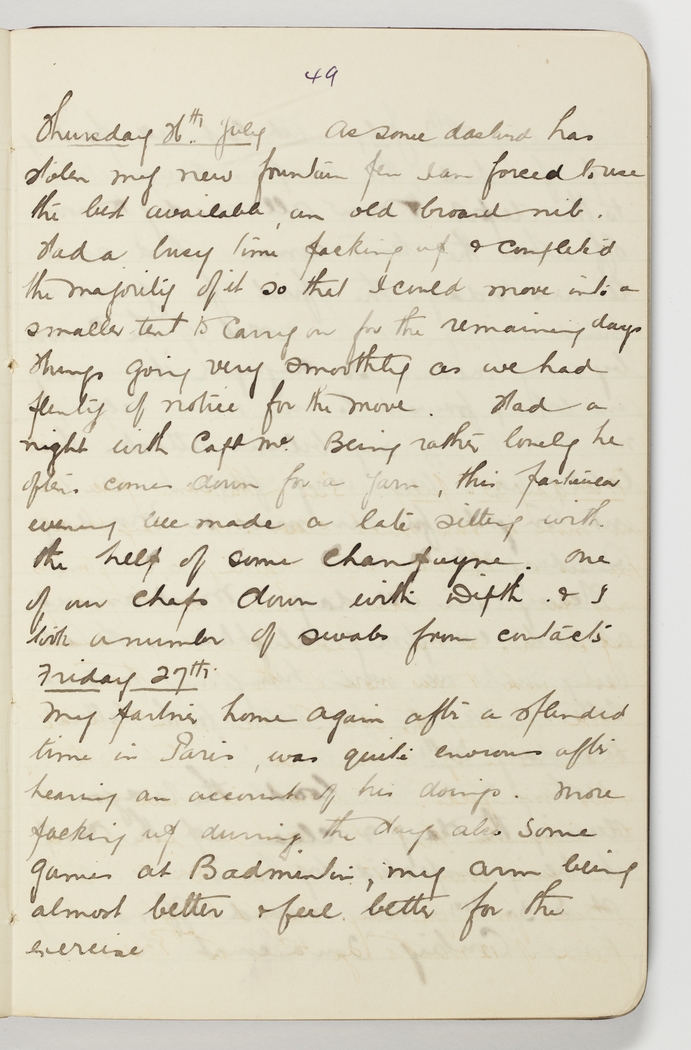 49
Thursday 26th. July As some dastard has
stolen my new fountain pen I am forced to use
the best available, an old broard nib.
Had a busy time packing up & completed
the majority of it so that I could move into a
smaller tent to carry on for the remaining days
Things going very smoothly as we had
plenty of notice for the move. Had a
night with Capt Mc. Being rather lonely he
often comes down for a yarn, this particular
evening we made a late sitting with
the help of some champayne. One
of our chaps down with Dipth. & I
took a number of swabs from contacts
Friday 27th.
My partner home again after a splendid
time in Paris, was quite envious after
hearing an account of his doings. More
packing up during the day also some
games at Badminton, my arm being
almost better & feel better for the
exercise